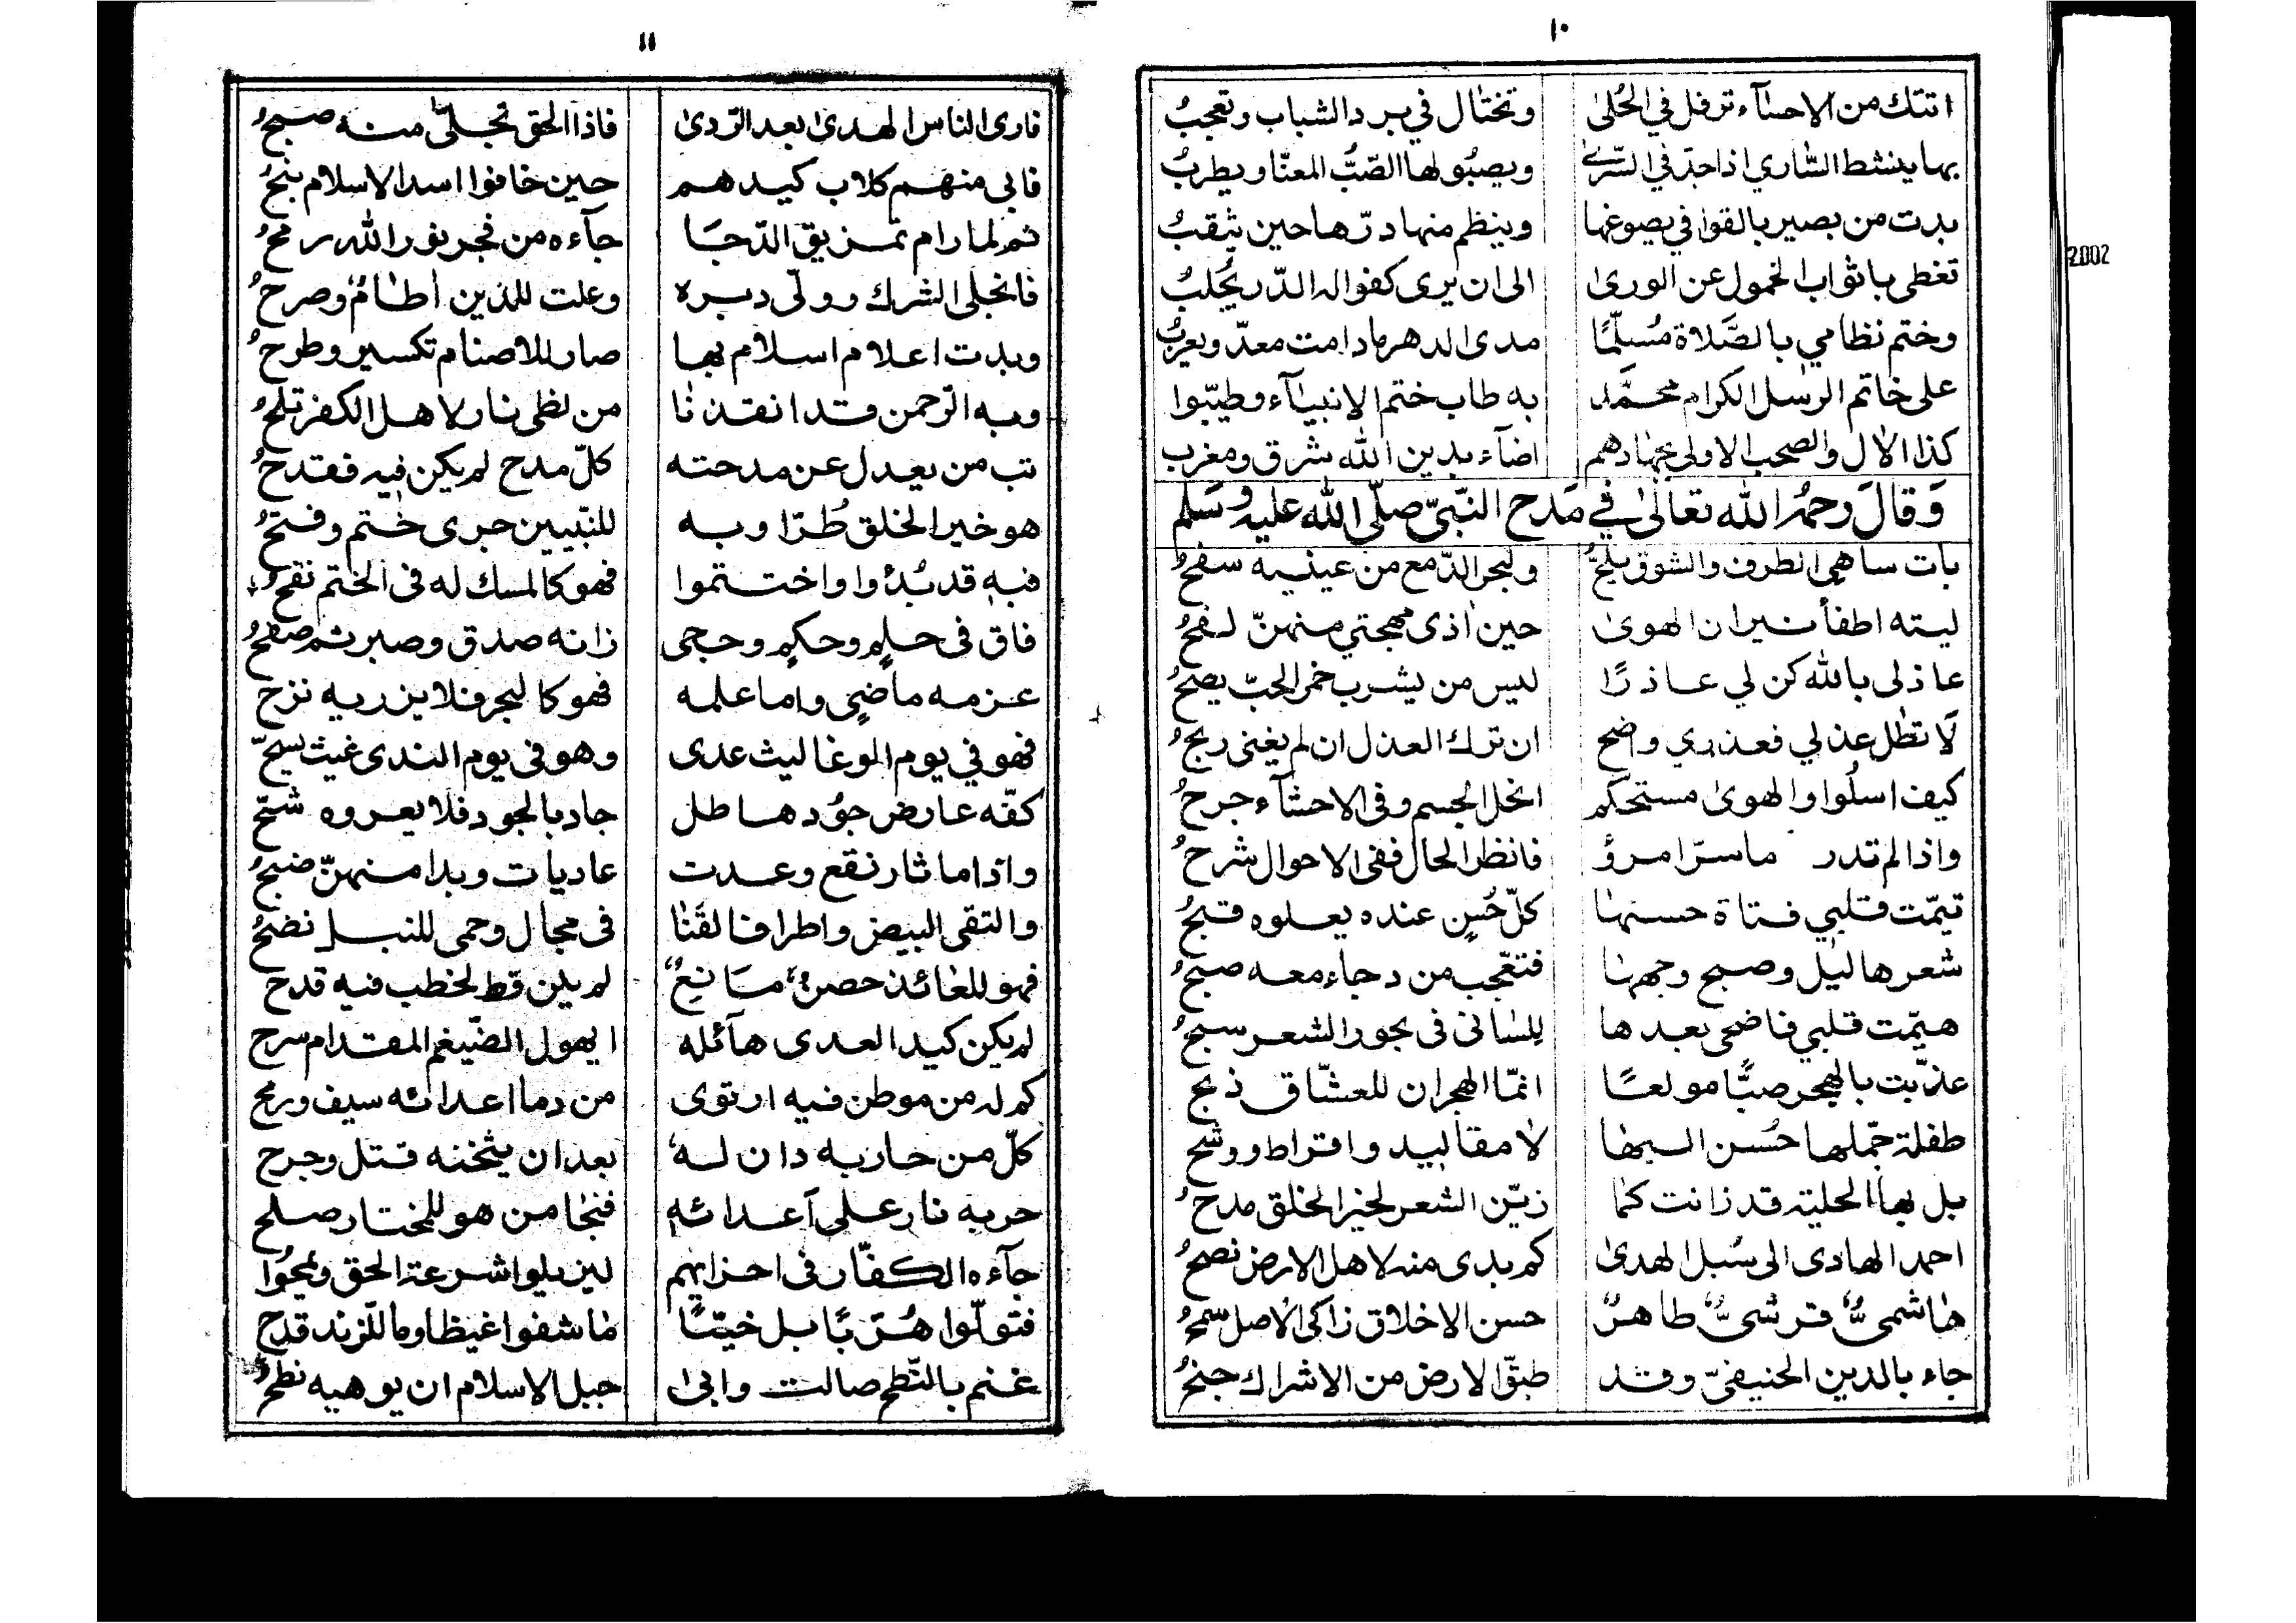 ١٠
اتتك من الاحسآء ترفل في الحُلىٰ وتختال في برد الشباب وتعجبُ
بها ينشط السّاري اذا جدّ في السّرىٰ ويصبُو لها الصّبُّ المعنّا ويطربُ
بدت من بصير بالقوافي يصوغها وينظم منها درّها حين يثقبُ
تغطى باثواب الخمول عن الورىٰ الى ان يرى كفوا له الدّر يُجلبُ
وختم نظامي بالصَّلاة مُسلّمًا مدى الدهر ما دامت معدّ ويعربُ
على خاتم الرسل الكرام محمَّد به طاب ختم الانبيآء وطيّبوا
كذا الال والصحب الاولى بجهادهم اضآء بدين الله شرق ومغرب
وَقالَ رحمهُ الله تعَالىٰ في مَدح النّبيّ صلّى الله عليه وسَلم
بات ساهي الطرف والشوق يلحُّ ولبحر الدّمع من عينيه سفحُ
ليته اطفأ نيران الهوىٰ حين اذى مهجتي منهنّ لفحُ
عاذلى بالله كن لي عاذرًا ليس من يشرب خمر الحبّ يصحُ
لَا تطل عذلي فعذري واضح ان ترك العذل ان لم يغنى ربحُ
كيف اسلُوا والهوىٰ مستحكم انحل الجسم وفى الاحشآء جرحُ
واذا لم تدر ما سرّ امرؤ فانظر الحال ففى الاحوال شرحُ
تيمّت قلبي فتاة حسنها كلّ حُسنٍ عنده يعلوه قبحُ
شعرها ليل وصبح وجهها فتعّجب من دجاء معه صبحُ
هيّمت قلبي فاضحى بعدها للسانى فى بحور الشعر سبحُ
عذّبت بالهجر صبًّا مولعًا انمّا الهجران للعشّاق ذبح
طفلة جمّلها حُسن البها لا مقاليد واقراط ووشح
بل بها الحلية قد زانت كما زيّن الشعر لخير الخلق مدحُ
احمد الهادى الى سُبل الهدىٰ كم بدى منه لاهل الارض نصحُ
هاشمىٌّ قرشىٌّ طاهرٌ حسن الاخلاق زاكى الاصل سمحُ
جاء بالدين الحنيفيّ وقد طبّق الارض من الاشراك جنحُ
١١
فارى الناس الهدىٰ بعد الرّدىٰ فاذا الحق تجلّى منه صبحُ
فابى منهم كلاب كيدهم حين خافوا اسد الاسلام نبحُ
ثم لما رام تمزيق الدّجَا جآءه من فجر نور الله رمحُ
فانجلى الشرك وولّى دبره وعلت للدين اطامٌ وصرحُ
وبدت اعلام اسلام بها صار للاصنام تكسير وطرحُ
وبه الرّحمن قد انقذنا من لظى نار لاهل الكفر تلحُ
تب من يعدل عن مدحته كلّ مدح لم يكن فيه فقدحُ
هو خير الخلق طُرّا وبه للنّبيين جرى ختم وفتحُ
فبه قد بُدؤا واختتموا فهو كالمسك له فى الختم نفحُ
فاق فى حلمٍ وحكمٍ وحجى زانه صدق وصبر ثم صفحُ
عزمه ماضي واما علمه فهو كالبحر فلا يزريه نزح
فهو في يوم الوغا ليث عدى وهو فى يوم الندى غيث يسحّ
كفّه عارض جوُد هاطل جاد بالجود فلا يعروه شحّ
واذا ما ثار نقع وعدت عاديات وبدا منهنّ ضبحُ
والتقى البيض واطراف القَنا فى مجال وحمى للنبل نضحُ
فهو للعائذ حصنٌ مَانعٌ لم يلن قط لخطب فيه قدح
لم يكن كيد العدى هآئله ايهول الضّيغم المقدام سرح
كم له من موطن فيه ارتوى من دما اعدائه سيف ورمح
كلّ من حاربه دان له بعد ان يثخنه قتل وجرح
حربه نار على اَعدائه فنجا من هو للمختار صلح
جآءه الكفّار فى احزابهم ليزيلوا شرعة الحق ويمحُوا
فتولّوا هُرّبًا بل خيّبًا ما شفوا غيظا وما للزند قدح
غنم بالنّطح صالت وابىٰ جبل الاسلام ان يوهيه نطحُ
2002